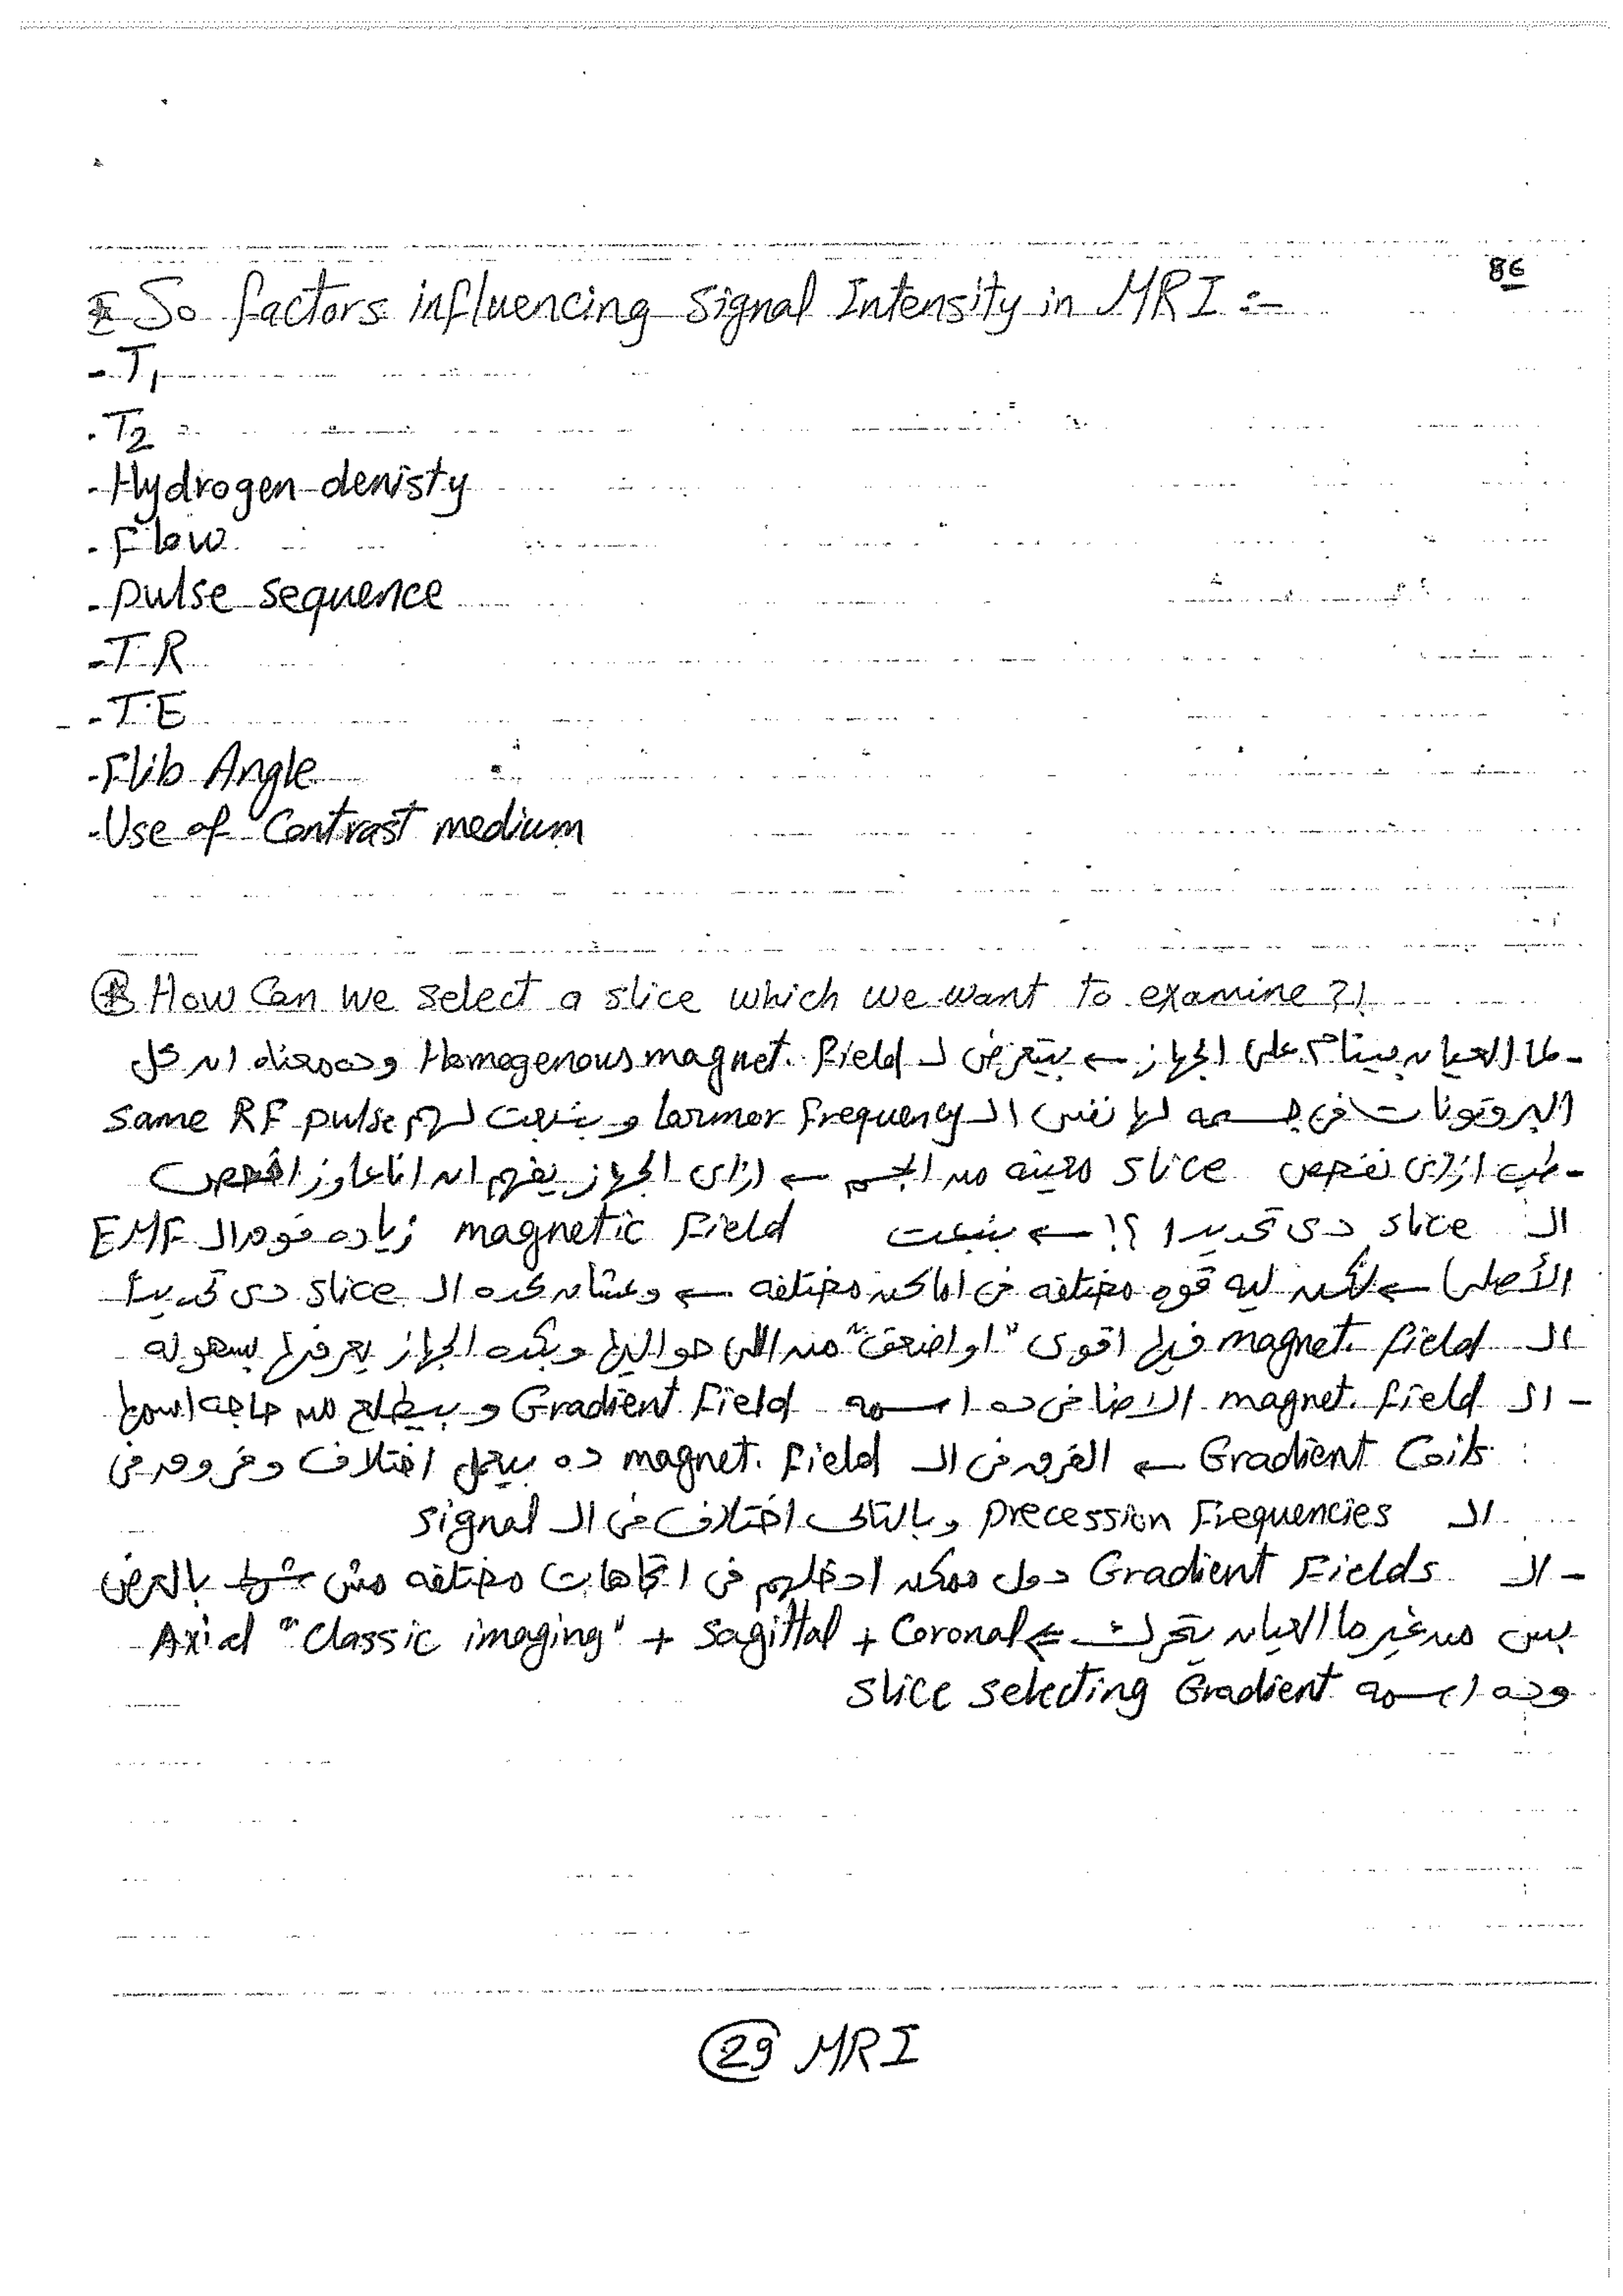 86
So factors influencing Signal Intensity in MRI :-
- T1
- T2
- Hydrogen denisty
- Flow
- pulse sequence
- T.R
- T.E
- Flib Angle
- Use of Contrast medium
How Can we select a slice which we want to examine ?!
- لما العيان بينام على الجهاز ← بيتعرض لـ Homogenous magnet. Field وده معناه ان كل
البروتونات في جسمه لها نفس الـ Larmor Frequency و بنبعت لهم same RF pulse
- طب ازاى نفحص slice معينه من الجسم ← ازاى الجهاز يفهم ان انا عاوز افحص
الـ slice دى تحديدا ؟! ← بنبعت magnetic Field زياده فوق الـ EMF
الأصلى ← لكن ليه قوه مختلفه فى اماكن مختلفه ← وعشان كده الـ slice دى تحديدا
الـ magnet. Field فيها اقوى "او اضعف" من اللى حواليها وبكده الجهاز يعرفها بسهوله
- الـ magnet. Field الاضافى ده اسمه Gradient Field و بيطلع من حاجه اسمها
Gradient Coils ← الفرق فى الـ magnet. Field ده بيعمل اختلاف وفروق فى
الـ precession Frequencies وبالتالى اختلاف فى الـ signal
- الـ Gradient Fields دول ممكن ادخلهم فى اتجاهات مختلفه مش شرط بالعرض
بس من غير ما العيان يتحرك ⇐ Axial "Classic imaging" + Sagittal + Coronal
وده اسمه slice selecting Gradient
29 MRI